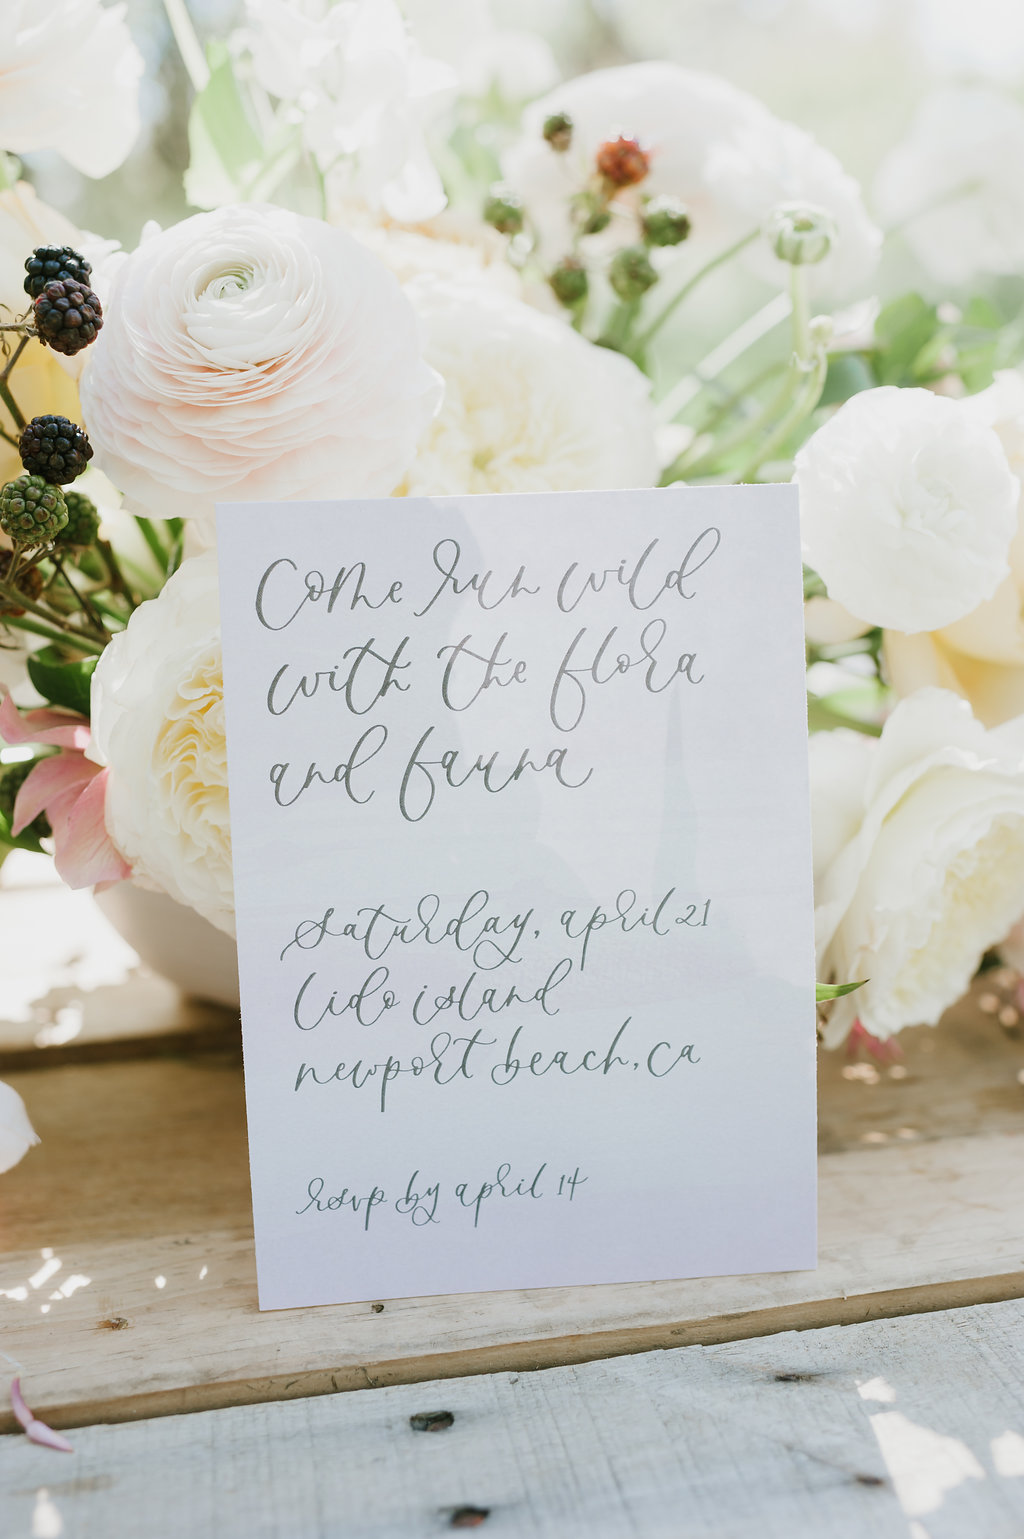 Come run wild
with the flora
and fauna
saturday, april 21
lido island
newport beach, ca
rsvp by april 14